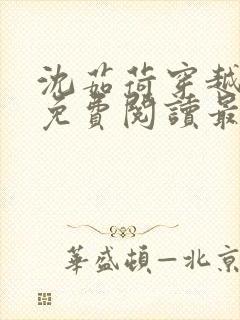 沈茹荷穿越
免費閱讀最
華盛頓—北京